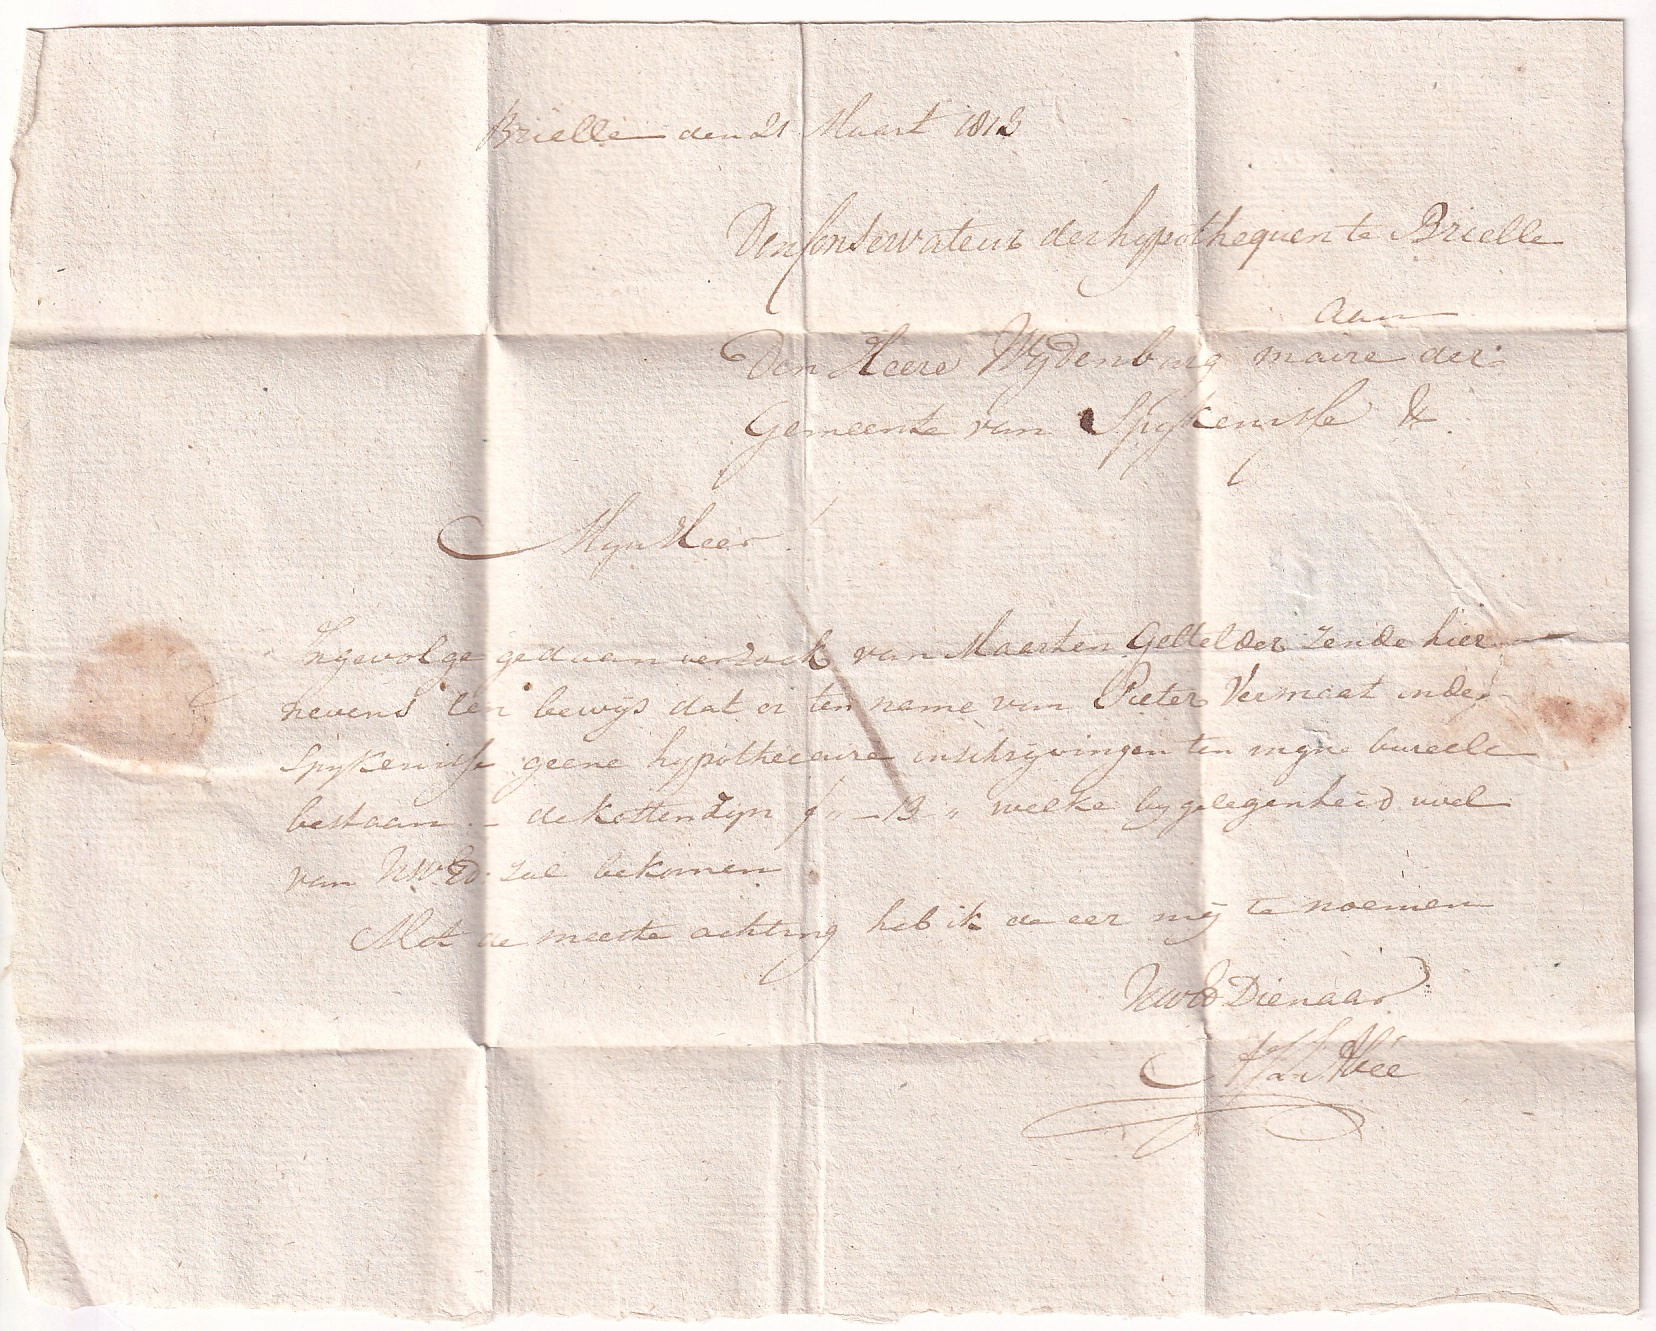 Brielle den 21 Maart 1813
Den Conservateur der hypothequen te Brielle
aan
Den Heere Wijdenburg maire der
Gemeente van Spijkenisse &
Mijn Heer!
Ingevolge gedaan verzoek van Maarten Geltelder zende hier
nevens een bewijs dat er ten name van Pieter Vermaat in de
Spijkenisse geene hypothecaire inschrijvingen ten mijne bureele
bestaan – de kosten zijn f „ – 13 „ welke bij gelegenheid wel
van UwEd. zal bekomen
Met de meeste achting heb ik de eer mij te noemen
UwEd Dienaar